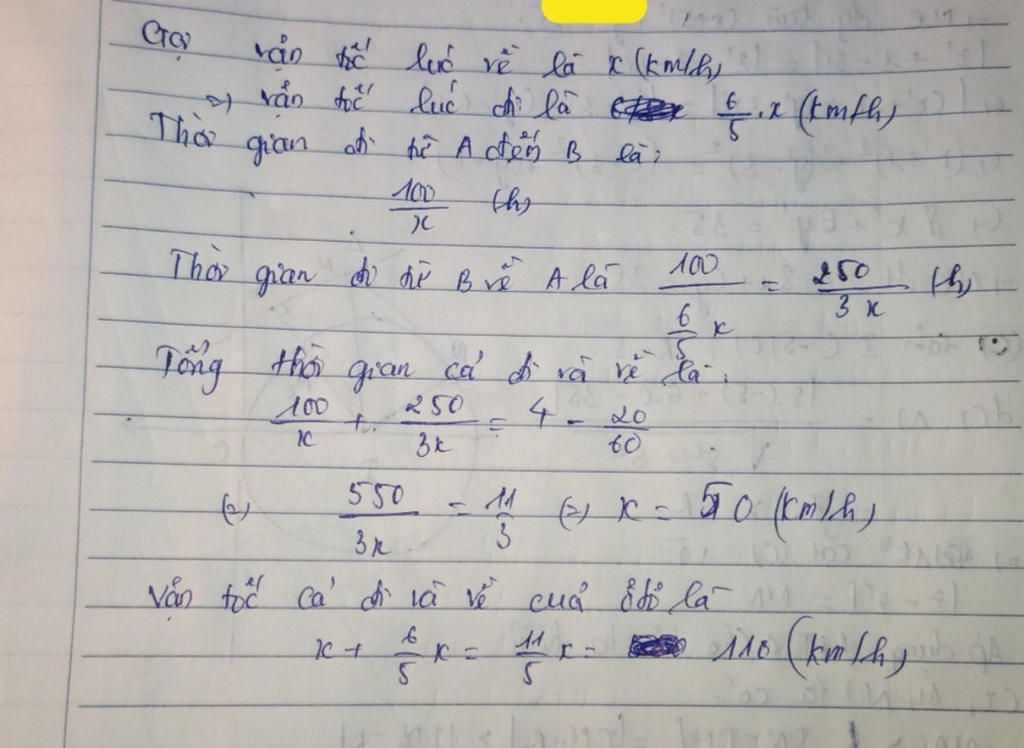 Gọi vận tốc lúc về là x (km/h)
=> vận tốc lúc đi là 6/5 . x (km/h)
Thời gian đi từ A đến B là:
100/x (h)
Thời gian đi từ B về A là 100/(6/5 x) = 250/3x (h)
Tổng thời gian cả đi và về là:
100/x + 250/3x = 4 - 20/60
(=) 550/3x = 11/3 (=) x = 50 (km/h)
Vận tốc cả đi và về của ôtô là
x + 6/5 x = 11/5 x = 110 (km/h)